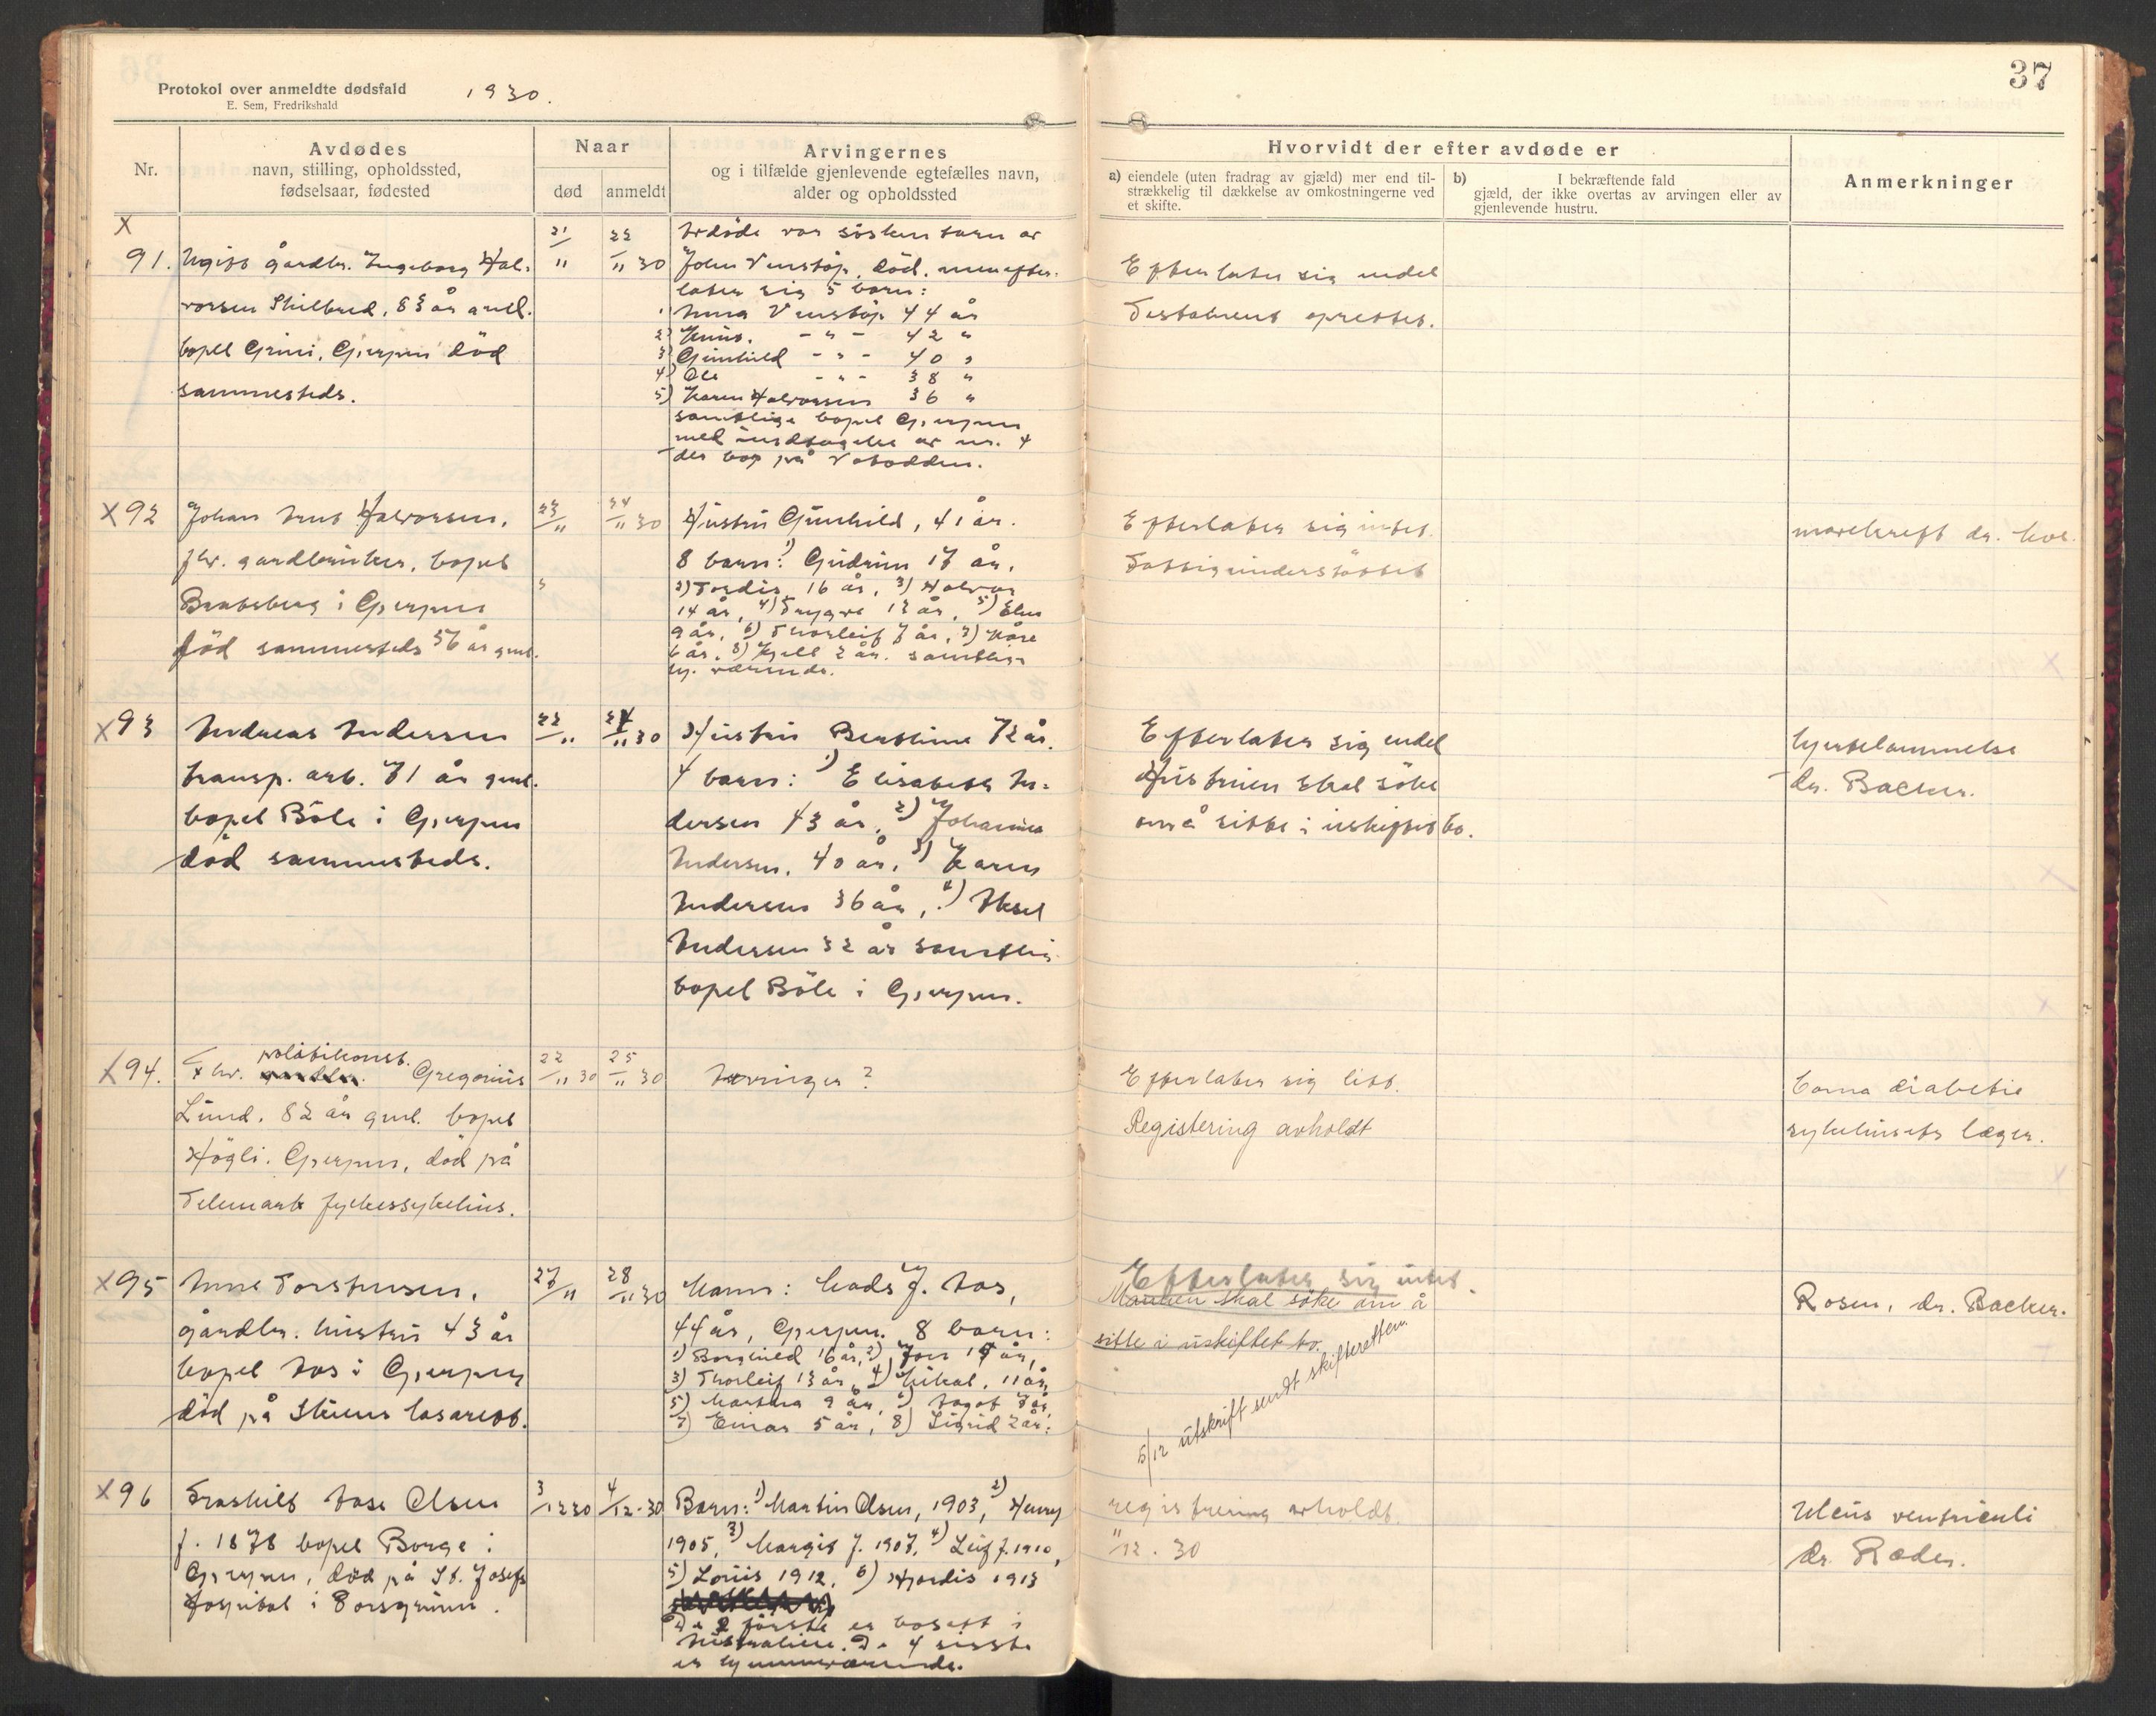 37
Protokol over anmeldte dødsfald
E. Sem, Fredrikshald
1930.
Nr.
Avdødes
navn, stilling, opholdssted,
fødselsaar, fødested
Naar
død
anmeldt
Arvingernes
og i tilfælde gjenlevende egtefælles navn,
alder og opholdssted
Hvorvidt der efter avdøde er
a) eiendele (uten fradrag av gjæld) mer end til-
strækkelig til dækkelse av omkostningerne ved
et skifte.
b) I bekræftende fald
gjæld, der ikke overtas av arvingen eller av
gjenlevende hustru.
Anmerkninger
X
91. Ugift gårdbr. Ingeborg Hal-
vorsen Skilbred, 83 år gml.
bopel Grini, Gjerpen död
sammesteds.
21/11
22/11 30
Avdöde var söskenbarn av
John Venstöp, död, men efter-
later sig 5 barn:
1) Anna Venstöp 44 år
2) Kuno. - " - 42 "
3) Gunhild - " - 40 "
4) Ole - " - 38 "
5) Karen Halvorsen 36 "
samtlige bopel Gjerpen
med undtagelse av nr. 4
der bor på Notodden.
Efterlater sig endel
Testament oprettet.
X 92 Johan Arnt Halvorsen,
fhv. gardbruker, bopel
Bratsberg i Gjerpen
död sammesteds 56 år gml.
23/11
24/11 30
Hustru Gunhild, 41 år.
8 barn: 1) Gudrun 17 år,
2) Tordis 16 år, 3) Halvor
14 år, 4) Trygve 12 år, 5) Else
9 år, 6) Thorleif 7 år, 7) Kåre
6 år, 8) Kjell 2 år. samtlige
hj. værende.
Efterlater sig intet.
Fattigunderstöttet
mavekreft dr. Hol.
X 93 Andreas Andersen
transp. arb. 71 år gml.
bopel Böle i Gjerpen
död sammesteds.
22/11
24/11 30
Hustru Berthine 72 år.
4 barn: 1) Elisabeth An-
dersen 43 år, 2) Johannes
Andersen, 40 år, 3) Karen
Andersen 36 år, 4) Aksel
Andersen 32 år samtlig
bopel Böle i Gjerpen.
Efterlater sig endel
Hustruen skal söke
om å sitte i uskiftet bo.
hjertelammelse
dr. Backer.
X 94. Fhv. politikonst. Gregorius
Lund, 82 år gml. bopel
Högli, Gjerpen, död på
Telemark fylkessykehus.
22/11 30
25/11 30
Arvinger?
Efterlater sig litt.
Registering avholdt
Coma diabetie
sykehusets læger.
X 95 Anne Torstensen,
gårdbr. hustru 43 år
bopel Aas i Gjerpen
död på Skiens lasarett.
27/11
28/11 30
Mann: Mads J. Aas,
44 år, Gjerpen. 8 barn:
1) Borghild 16 år, 2) Jon 14 år,
3) Thorleif 13 år, 4) Mikal, 11 år,
5) Martha 9 år, 6) Aagot 7 år,
7) Einar 5 år, 8) Sigrid 2 år.
Efterlater sig intet.
Mannen skal söke om å
sitte i uskiftet bo.
5/12 utskrift sendt skifteretten.
Rosen, dr. Backer.
X 96 Fraskilt Aase Olsen
f. 1878 bopel Borge i
Gjerpen, död på St. Josefs
Hospital i Porsgrunn.
3/12 30
4/12 - 30
Barn: 1) Martin Olsen, 1903, 2) Henry
1905, 3) Margit f. 1907, 4) Leif f. 1910,
5) Louis 1912, 6) Hjordis 1913
De 2 förste er bosatt i
Australien. De 4 sisste
er hjemmeværende.
registrering avholdt
11/12 - 30
Ulcus ventriculi
dr. Røder.